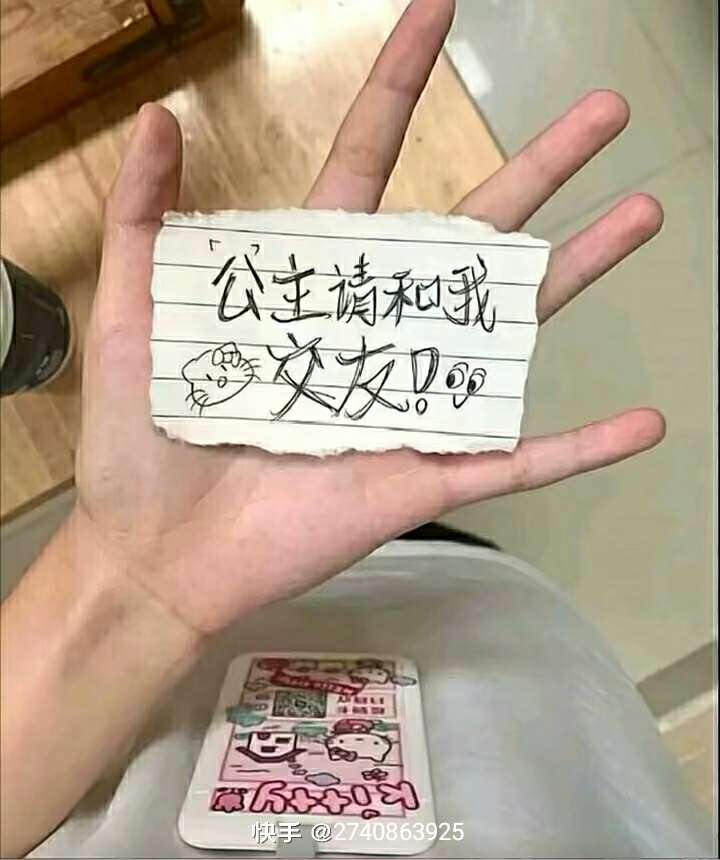 「公」主请和我
交友!
Kitty
快手 @2740863925